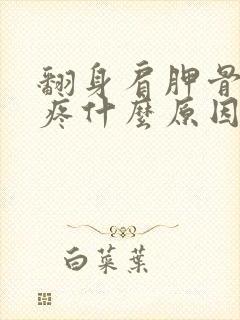 翻身肩胛骨
疼什麼原因
白菜葉